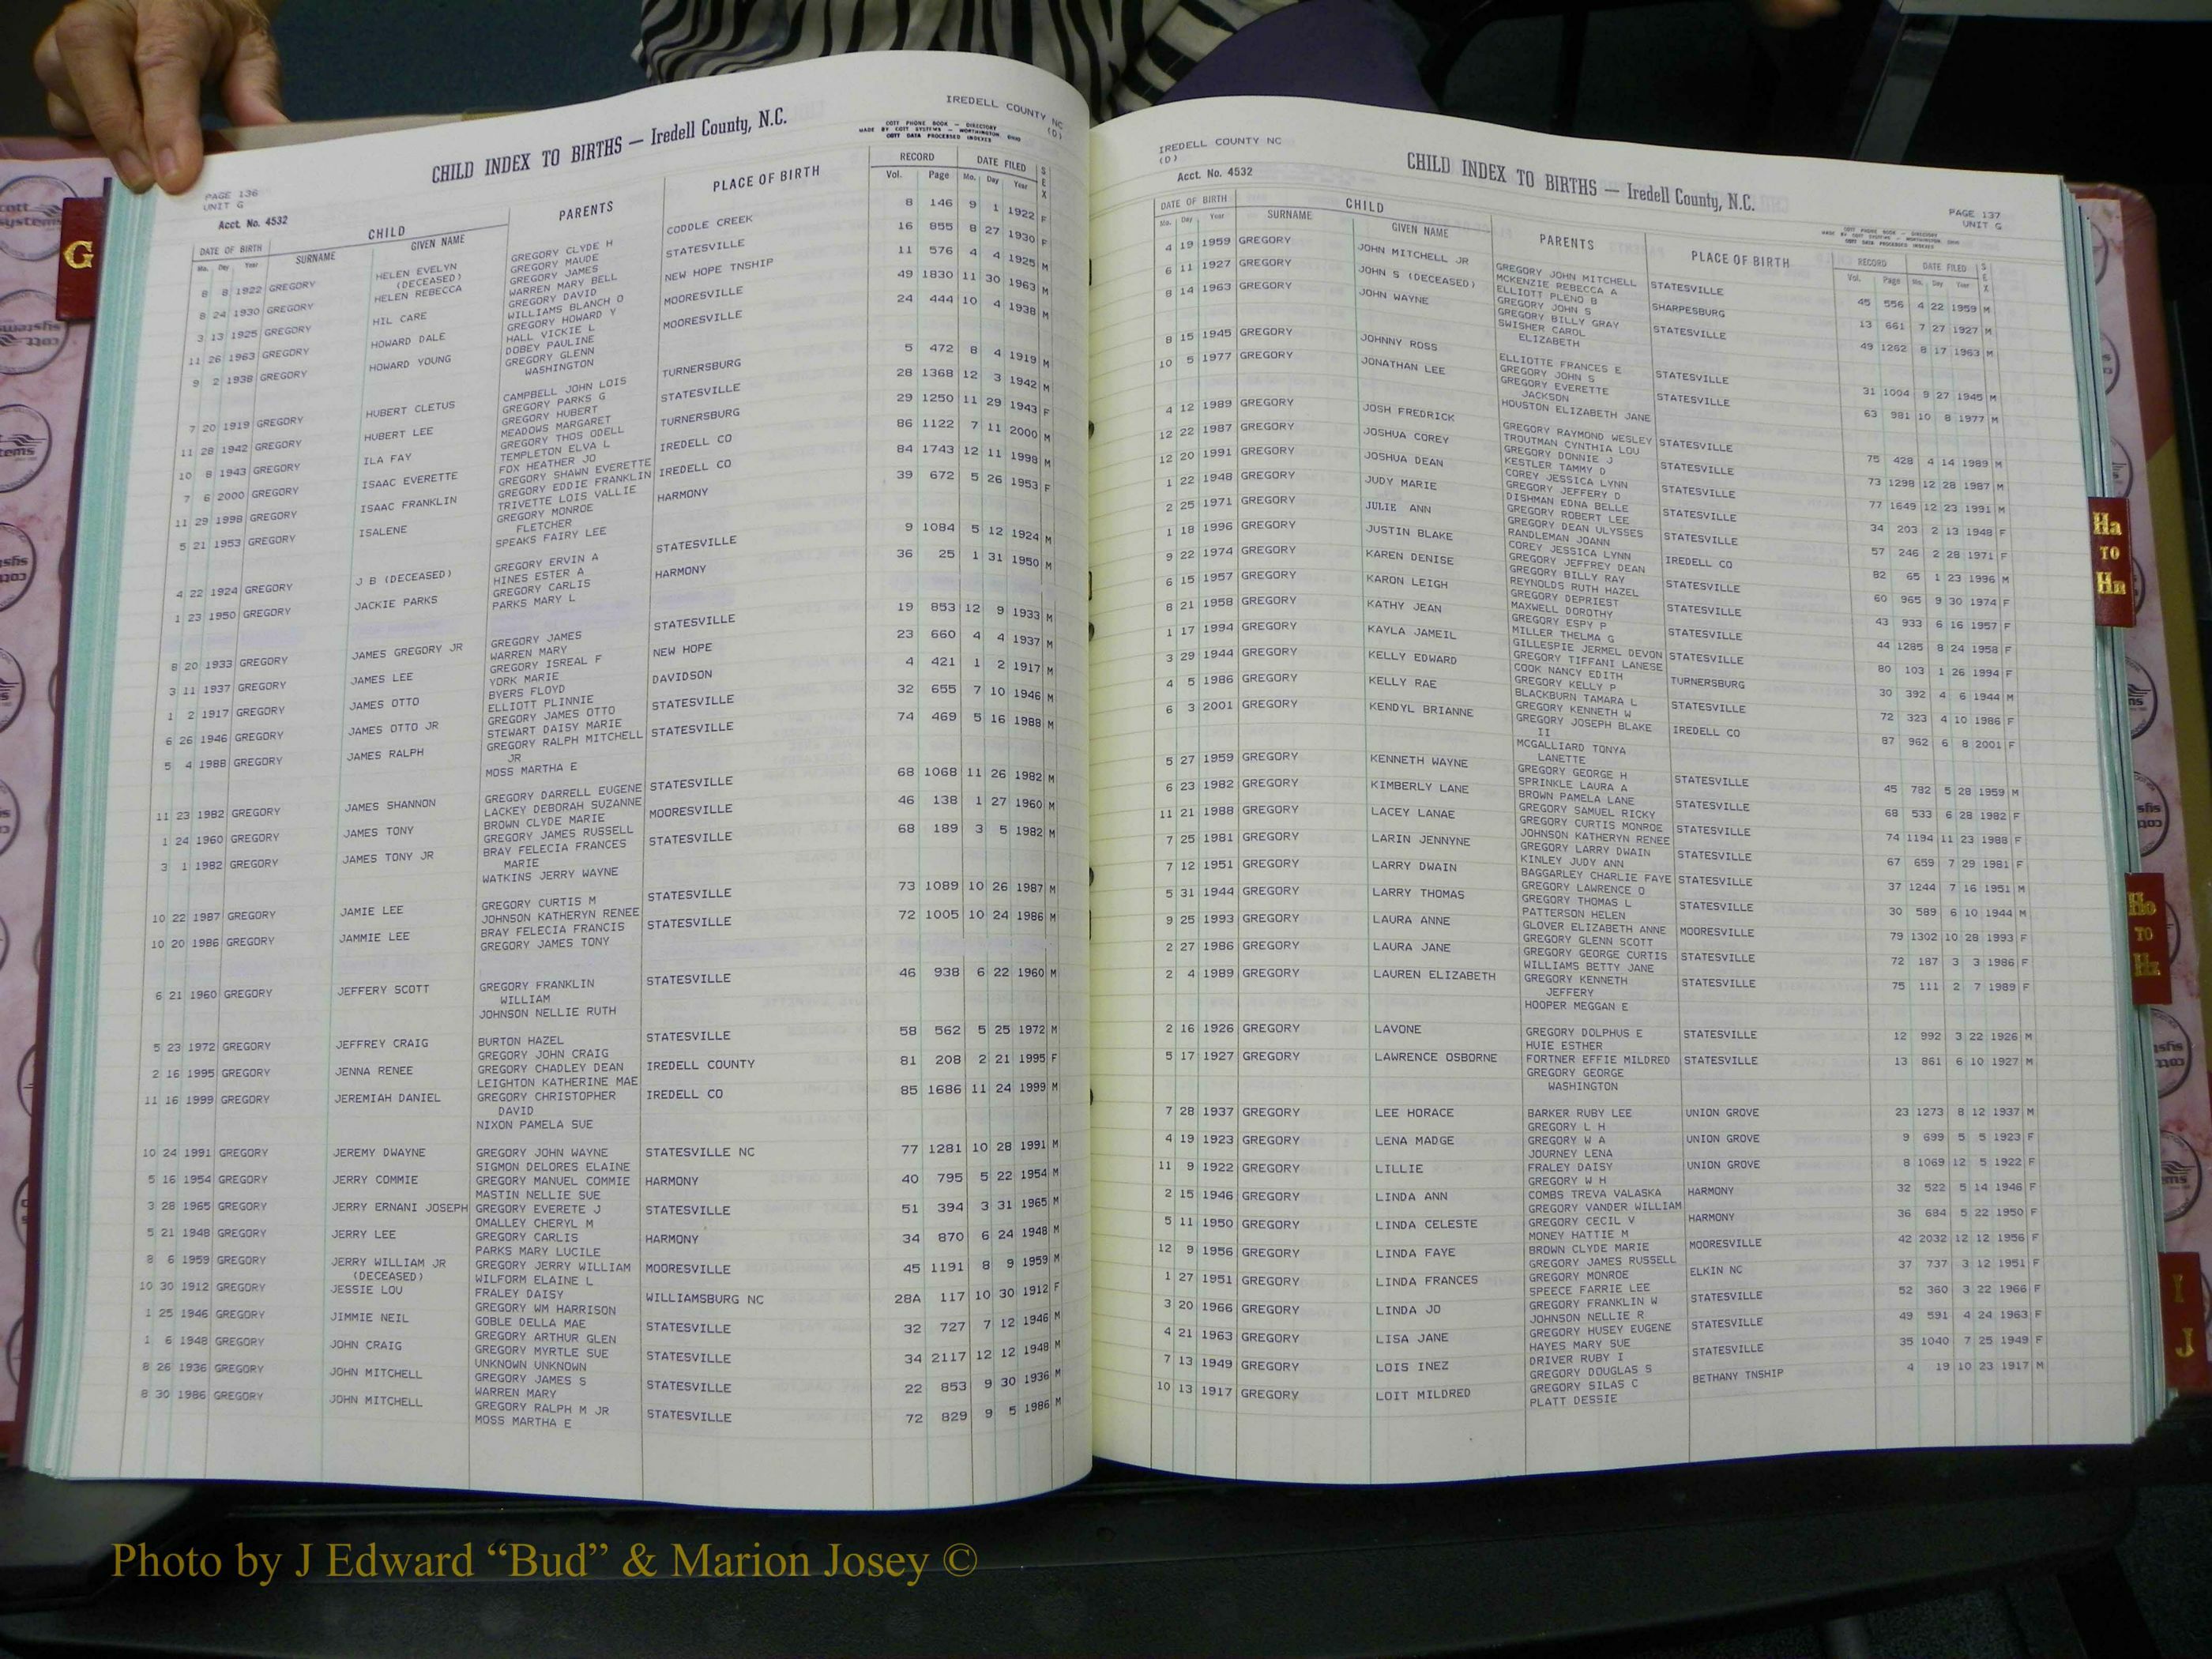 IREDELL COUNTY NC
(D)
CHILD INDEX TO BIRTHS — Iredell County, N.C.
COTT PHONE BOOK — DIRECTORY
MADE BY COTT SYSTEMS — WORTHINGTON, OHIO
COTT DATA PROCESSED INDEXES
PAGE 136
UNIT G
Acct. No. 4532
DATE OF BIRTH CHILD PARENTS PLACE OF BIRTH RECORD DATE FILED SEX
Mo. Day Year SURNAME GIVEN NAME Vol. Page Mo. Day Year
8 8 1922 GREGORY HELEN EVELYN GREGORY CLYDE H CODDLE CREEK 8 146 9 1 1922 F
(DECEASED) GREGORY MAUDE
8 24 1930 GREGORY HELEN REBECCA GREGORY JAMES STATESVILLE 16 855 8 27 1930 F
WARREN MARY BELL
3 13 1925 GREGORY HIL CARE GREGORY DAVID NEW HOPE TNSHIP 11 576 4 4 1925 M
WILLIAMS BLANCH O
11 26 1963 GREGORY HOWARD DALE GREGORY HOWARD Y MOORESVILLE 49 1830 11 30 1963 M
HALL VICKIE L
9 2 1938 GREGORY HOWARD YOUNG DOBEY PAULINE MOORESVILLE 24 444 10 4 1938 M
GREGORY GLENN
WASHINGTON
7 20 1919 GREGORY HUBERT CLETUS CAMPBELL JOHN LOIS TURNERSBURG 5 472 8 4 1919 M
GREGORY PARKS G
11 28 1942 GREGORY HUBERT LEE GREGORY HUBERT STATESVILLE 28 1368 12 3 1942 M
MEADOWS MARGARET
10 8 1943 GREGORY ILA FAY GREGORY THOS ODELL TURNERSBURG 29 1250 11 29 1943 F
TEMPLETON ELVA L
7 6 2000 GREGORY ISAAC EVERETTE FOX HEATHER JO IREDELL CO 86 1122 7 11 2000 M
GREGORY SHAWN EVERETTE
11 29 1998 GREGORY ISAAC FRANKLIN GREGORY EDDIE FRANKLIN IREDELL CO 84 1743 12 11 1998 M
TRIVETTE LOIS VALLIE
5 21 1953 GREGORY ISALENE GREGORY MONROE HARMONY 39 672 5 26 1953 F
FLETCHER
SPEAKS FAIRY LEE
4 22 1924 GREGORY J B (DECEASED) GREGORY ERVIN A STATESVILLE 9 1084 5 12 1924 M
HINES ESTER A
1 23 1950 GREGORY JACKIE PARKS GREGORY CARLIS HARMONY 36 25 1 31 1950 M
PARKS MARY L
8 20 1933 GREGORY JAMES GREGORY JR GREGORY JAMES STATESVILLE 19 853 12 9 1933 M
WARREN MARY
3 11 1937 GREGORY JAMES LEE GREGORY ISREAL F NEW HOPE 23 660 4 4 1937 M
YORK MARIE
1 2 1917 GREGORY JAMES OTTO BYERS FLOYD DAVIDSON 4 421 1 2 1917 M
ELLIOTT PLINNIE
6 26 1946 GREGORY JAMES OTTO JR GREGORY JAMES OTTO STATESVILLE 32 655 7 10 1946 M
STEWART DAISY MARIE
5 4 1988 GREGORY JAMES RALPH GREGORY RALPH MITCHELL STATESVILLE 74 469 5 16 1988 M
JR
MOSS MARTHA E
11 23 1982 GREGORY JAMES SHANNON GREGORY DARRELL EUGENE STATESVILLE 68 1068 11 26 1982 M
LACKEY DEBORAH SUZANNE
1 24 1960 GREGORY JAMES TONY BROWN CLYDE MARIE MOORESVILLE 46 138 1 27 1960 M
GREGORY JAMES RUSSELL
3 1 1982 GREGORY JAMES TONY JR BRAY FELECIA FRANCES STATESVILLE 68 189 3 5 1982 M
MARIE
WATKINS JERRY WAYNE
10 22 1987 GREGORY JAMIE LEE GREGORY CURTIS M STATESVILLE 73 1089 10 26 1987 M
JOHNSON KATHERYN RENEE
10 20 1986 GREGORY JAMMIE LEE BRAY FELECIA FRANCIS STATESVILLE 72 1005 10 24 1986 M
GREGORY JAMES TONY
6 21 1960 GREGORY JEFFERY SCOTT GREGORY FRANKLIN STATESVILLE 46 938 6 22 1960 M
WILLIAM
JOHNSON NELLIE RUTH
5 23 1972 GREGORY JEFFREY CRAIG BURTON HAZEL STATESVILLE 58 562 5 25 1972 M
GREGORY JOHN CRAIG
2 16 1995 GREGORY JENNA RENEE GREGORY CHADLEY DEAN IREDELL COUNTY 81 208 2 21 1995 F
LEIGHTON KATHERINE MAE
11 16 1999 GREGORY JEREMIAH DANIEL GREGORY CHRISTOPHER IREDELL CO 85 1686 11 24 1999 M
DAVID
NIXON PAMELA SUE
10 24 1991 GREGORY JEREMY DWAYNE GREGORY JOHN WAYNE STATESVILLE NC 77 1281 10 28 1991 M
SIGMON DELORES ELAINE
5 16 1954 GREGORY JERRY COMMIE GREGORY MANUEL COMMIE HARMONY 40 795 5 22 1954 M
MASTIN NELLIE SUE
3 28 1965 GREGORY JERRY ERNANI JOSEPH GREGORY EVERETE J STATESVILLE 51 394 3 31 1965 M
OMALLEY CHERYL M
5 21 1948 GREGORY JERRY LEE GREGORY CARLIS HARMONY 34 870 6 24 1948 M
PARKS MARY LUCILE
8 6 1959 GREGORY JERRY WILLIAM JR GREGORY JERRY WILLIAM MOORESVILLE 45 1191 8 9 1959 M
(DECEASED) WILFORM ELAINE L
10 30 1912 GREGORY JESSIE LOU FRALEY DAISY WILLIAMSBURG NC 28A 117 10 30 1912 F
GREGORY WM HARRISON
1 25 1946 GREGORY JIMMIE NEIL GOBLE DELLA MAE STATESVILLE 32 727 7 12 1946 M
GREGORY ARTHUR GLEN
1 6 1948 GREGORY JOHN CRAIG GREGORY MYRTLE SUE STATESVILLE 34 2117 12 12 1948 M
UNKNOWN UNKNOWN
8 26 1936 GREGORY JOHN MITCHELL GREGORY JAMES S STATESVILLE 22 853 9 30 1936 M
WARREN MARY
8 30 1986 GREGORY JOHN MITCHELL GREGORY RALPH M JR STATESVILLE 72 829 9 5 1986 M
MOSS MARTHA E
IREDELL COUNTY NC
(D)
Acct. No. 4532
CHILD INDEX TO BIRTHS — Iredell County, N.C.
PAGE 137
UNIT G
COTT PHONE BOOK — DIRECTORY
MADE BY COTT SYSTEMS — WORTHINGTON, OHIO
COTT DATA PROCESSED INDEXES
DATE OF BIRTH CHILD PARENTS PLACE OF BIRTH RECORD DATE FILED SEX
Mo. Day Year SURNAME GIVEN NAME Vol. Page Mo. Day Year
4 19 1959 GREGORY JOHN MITCHELL JR GREGORY JOHN MITCHELL STATESVILLE 45 556 4 22 1959 M
MCKENZIE REBECCA A
6 11 1927 GREGORY JOHN S (DECEASED) ELLIOTT PLENO B SHARPESBURG 13 661 7 27 1927 M
GREGORY JOHN S
8 14 1963 GREGORY JOHN WAYNE GREGORY BILLY GRAY STATESVILLE 49 1262 8 17 1963 M
SWISHER CAROL
ELIZABETH
8 15 1945 GREGORY JOHNNY ROSS ELLIOTTE FRANCES E STATESVILLE 31 1004 9 27 1945 M
GREGORY JOHN S
10 5 1977 GREGORY JONATHAN LEE GREGORY EVERETTE STATESVILLE 63 981 10 8 1977 M
JACKSON
HOUSTON ELIZABETH JANE
4 12 1989 GREGORY JOSH FREDRICK GREGORY RAYMOND WESLEY STATESVILLE 75 428 4 14 1989 M
TROUTMAN CYNTHIA LOU
12 22 1987 GREGORY JOSHUA COREY GREGORY DONNIE J STATESVILLE 73 1298 12 28 1987 M
KESTLER TAMMY D
12 20 1991 GREGORY JOSHUA DEAN COREY JESSICA LYNN STATESVILLE 77 1649 12 23 1991 M
GREGORY JEFFERY D
1 22 1948 GREGORY JUDY MARIE DISHMAN EDNA BELLE STATESVILLE 34 203 2 13 1948 F
GREGORY ROBERT LEE
2 25 1971 GREGORY JULIE ANN GREGORY DEAN ULYSSES STATESVILLE 57 246 2 28 1971 F
RANDLEMAN JOANN
1 18 1996 GREGORY JUSTIN BLAKE COREY JESSICA LYNN IREDELL CO 82 65 1 23 1996 M
GREGORY JEFFREY DEAN
9 22 1974 GREGORY KAREN DENISE GREGORY BILLY RAY STATESVILLE 60 965 9 30 1974 F
REYNOLDS RUTH HAZEL
6 15 1957 GREGORY KARON LEIGH GREGORY DEPRIEST STATESVILLE 43 933 6 16 1957 F
MAXWELL DOROTHY
8 21 1958 GREGORY KATHY JEAN GREGORY ESPY P STATESVILLE 44 1285 8 24 1958 F
MILLER THELMA G
1 17 1994 GREGORY KAYLA JAMEIL GILLESPIE JERMEL DEVON STATESVILLE 80 103 1 26 1994 F
GREGORY TIFFANI LANESE
3 29 1944 GREGORY KELLY EDWARD COOK NANCY EDITH TURNERSBURG 30 392 4 6 1944 M
GREGORY KELLY P
4 5 1986 GREGORY KELLY RAE BLACKBURN TAMARA L STATESVILLE 72 323 4 10 1986 F
GREGORY KENNETH W
6 3 2001 GREGORY KENDYL BRIANNE GREGORY JOSEPH BLAKE IREDELL CO 87 962 6 8 2001 F
II
MCGALLIARD TONYA
LANETTE
5 27 1959 GREGORY KENNETH WAYNE GREGORY GEORGE H STATESVILLE 45 782 5 28 1959 M
SPRINKLE LAURA A
6 23 1982 GREGORY KIMBERLY LANE BROWN PAMELA LANE STATESVILLE 68 533 6 28 1982 F
GREGORY SAMUEL RICKY
11 21 1988 GREGORY LACEY LANAE GREGORY CURTIS MONROE STATESVILLE 74 1194 11 23 1988 F
JOHNSON KATHERYN RENEE
7 25 1981 GREGORY LARIN JENNYNE GREGORY LARRY DWAIN STATESVILLE 67 659 7 29 1981 F
KINLEY JUDY ANN
7 12 1951 GREGORY LARRY DWAIN BAGGARLEY CHARLIE FAYE STATESVILLE 37 1244 7 16 1951 M
GREGORY LAWRENCE O
5 31 1944 GREGORY LARRY THOMAS GREGORY THOMAS L STATESVILLE 30 589 6 10 1944 M
PATTERSON HELEN
9 25 1993 GREGORY LAURA ANNE GLOVER ELIZABETH ANNE MOORESVILLE 79 1302 10 28 1993 F
GREGORY GLENN SCOTT
2 27 1986 GREGORY LAURA JANE GREGORY GEORGE CURTIS STATESVILLE 72 187 3 3 1986 F
WILLIAMS BETTY JANE
2 4 1989 GREGORY LAUREN ELIZABETH GREGORY KENNETH STATESVILLE 75 111 2 7 1989 F
JEFFERY
HOOPER MEGGAN E
2 16 1926 GREGORY LAVONE GREGORY DOLPHUS E STATESVILLE 12 992 3 22 1926 M
HUIE ESTHER
5 17 1927 GREGORY LAWRENCE OSBORNE FORTNER EFFIE MILDRED STATESVILLE 13 861 6 10 1927 M
GREGORY GEORGE
WASHINGTON
7 28 1937 GREGORY LEE HORACE BARKER RUBY LEE UNION GROVE 23 1273 8 12 1937 M
GREGORY L H
4 19 1923 GREGORY LENA MADGE GREGORY W A UNION GROVE 9 699 5 5 1923 F
JOURNEY LENA
11 9 1922 GREGORY LILLIE FRALEY DAISY UNION GROVE 8 1069 12 5 1922 F
GREGORY W H
2 15 1946 GREGORY LINDA ANN COMBS TREVA VALASKA HARMONY 32 522 5 14 1946 F
GREGORY VANDER WILLIAM
5 11 1950 GREGORY LINDA CELESTE GREGORY CECIL V HARMONY 36 684 5 22 1950 F
MONEY HATTIE M
12 9 1956 GREGORY LINDA FAYE BROWN CLYDE MARIE MOORESVILLE 42 2032 12 12 1956 F
GREGORY JAMES RUSSELL
1 27 1951 GREGORY LINDA FRANCES GREGORY MONROE ELKIN NC 37 737 3 12 1951 F
SPEECE FARRIE LEE
3 20 1966 GREGORY LINDA JO GREGORY FRANKLIN W STATESVILLE 52 360 3 22 1966 F
JOHNSON NELLIE R
4 21 1963 GREGORY LISA JANE GREGORY HUSEY EUGENE STATESVILLE 49 591 4 24 1963 F
HAYES MARY SUE
7 13 1949 GREGORY LOIS INEZ DRIVER RUBY I STATESVILLE 35 1040 7 25 1949 F
GREGORY DOUGLAS S
10 13 1917 GREGORY LOIT MILDRED GREGORY SILAS C BETHANY TNSHIP 4 19 10 23 1917 M
PLATT DESSIE
G
Ha
TO
Hn
Ho
TO
Hz
I
J
Photo by J Edward “Bud” & Marion Josey ©